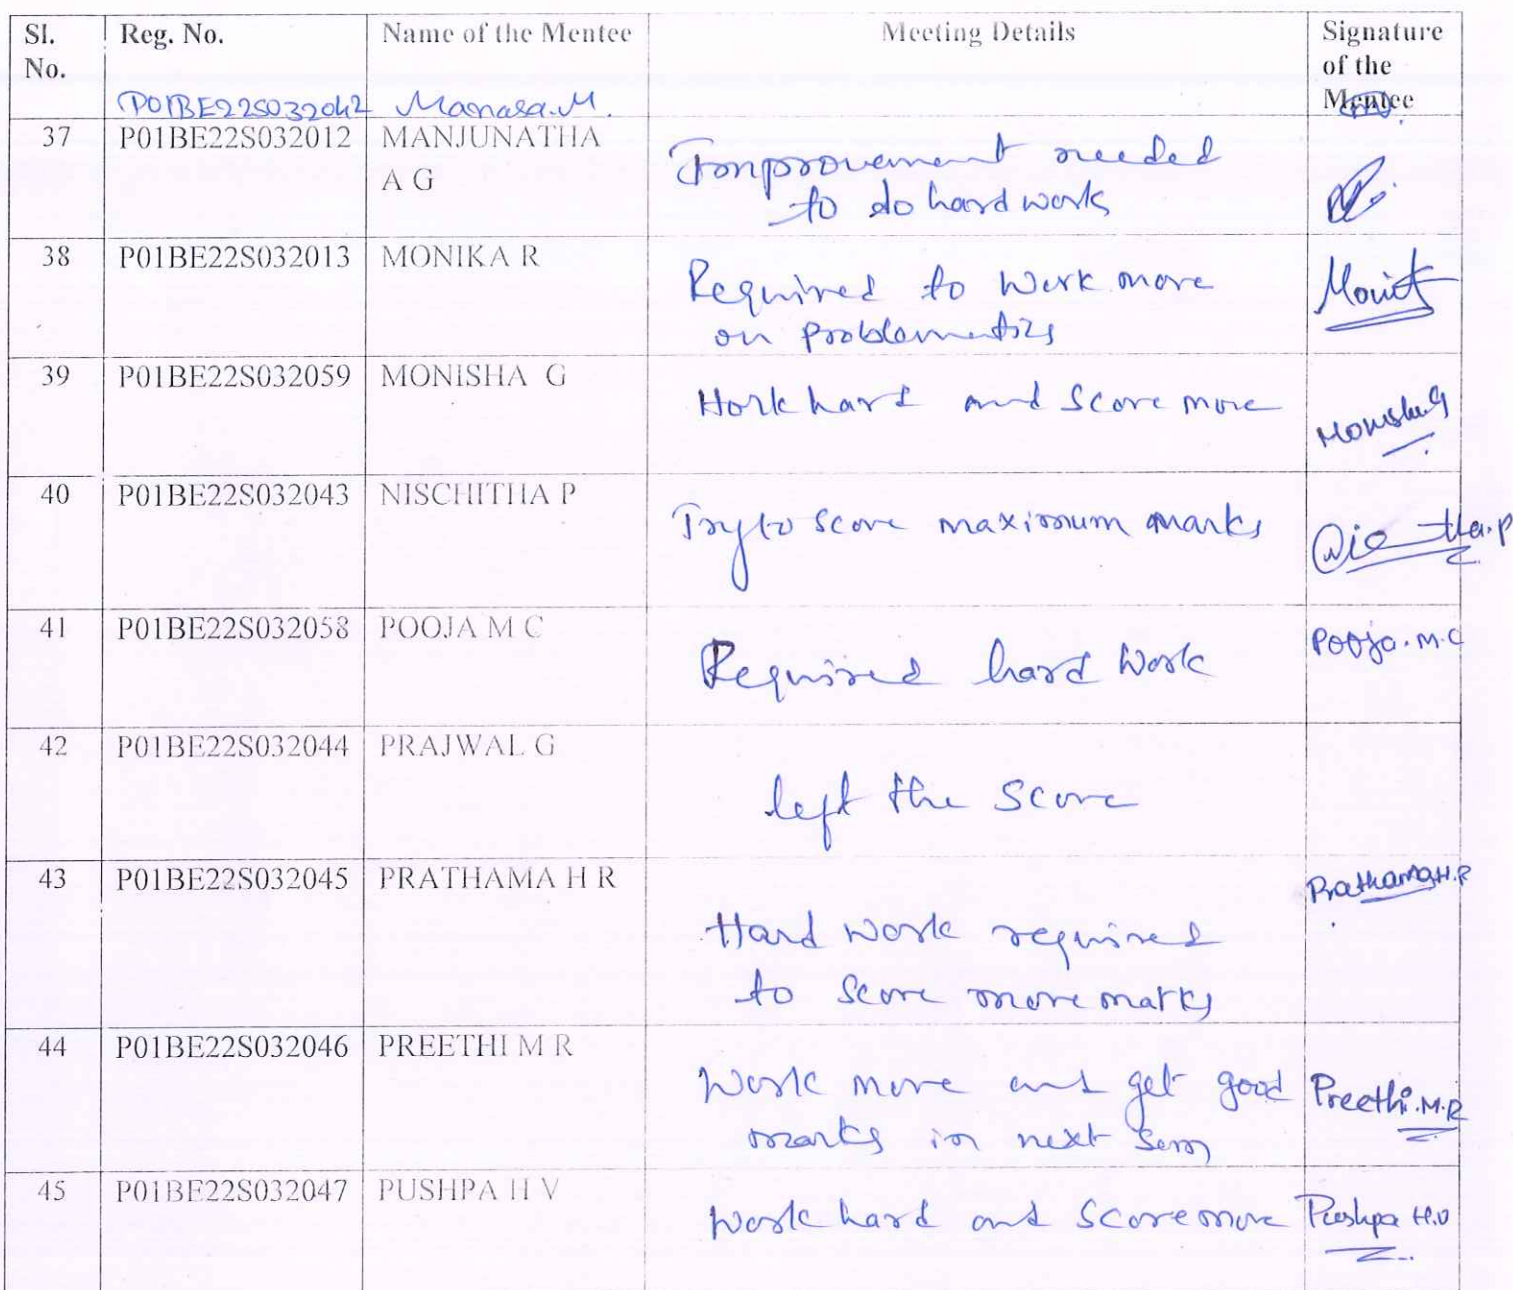 Sl. No. Reg. No. Name of the Mentee Meeting Details Signature of the Mentee
P01BE22S032042 Manasa.M.
37 P01BE22S032012 MANJUNATHA A G Improvement needed
to do hard work
38 P01BE22S032013 MONIKA R Required to work more
on
39 P01BE22S032059 MONISHA G Work hard and score more Monisha G
40 P01BE22S032043 NISCHITHA P Try to score maximum marks
41 P01BE22S032058 POOJA M C Required hard work Pooja.M.C
42 P01BE22S032044 PRAJWAL G left the score
43 P01BE22S032045 PRATHAMA H R Prathama H.R
Hard work required
to score more marks
44 P01BE22S032046 PREETHI M R Work more and get good Preethi.M.R
marks in next sem
45 P01BE22S032047 PUSHPA H V work hard and score more Pushpa H.V